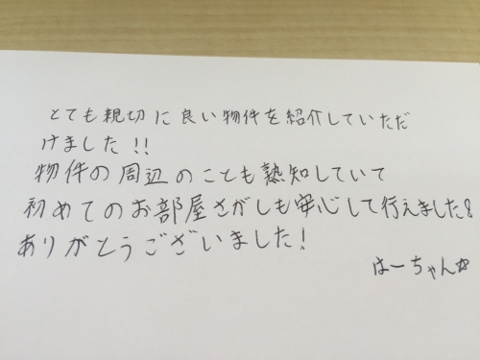 とても親切に良い物件を紹介していただ
けました!!
物件の周辺のことも熟知していて
初めてのお部屋さがしも安心して行えました!
ありがとうございました!
はーちゃん☆